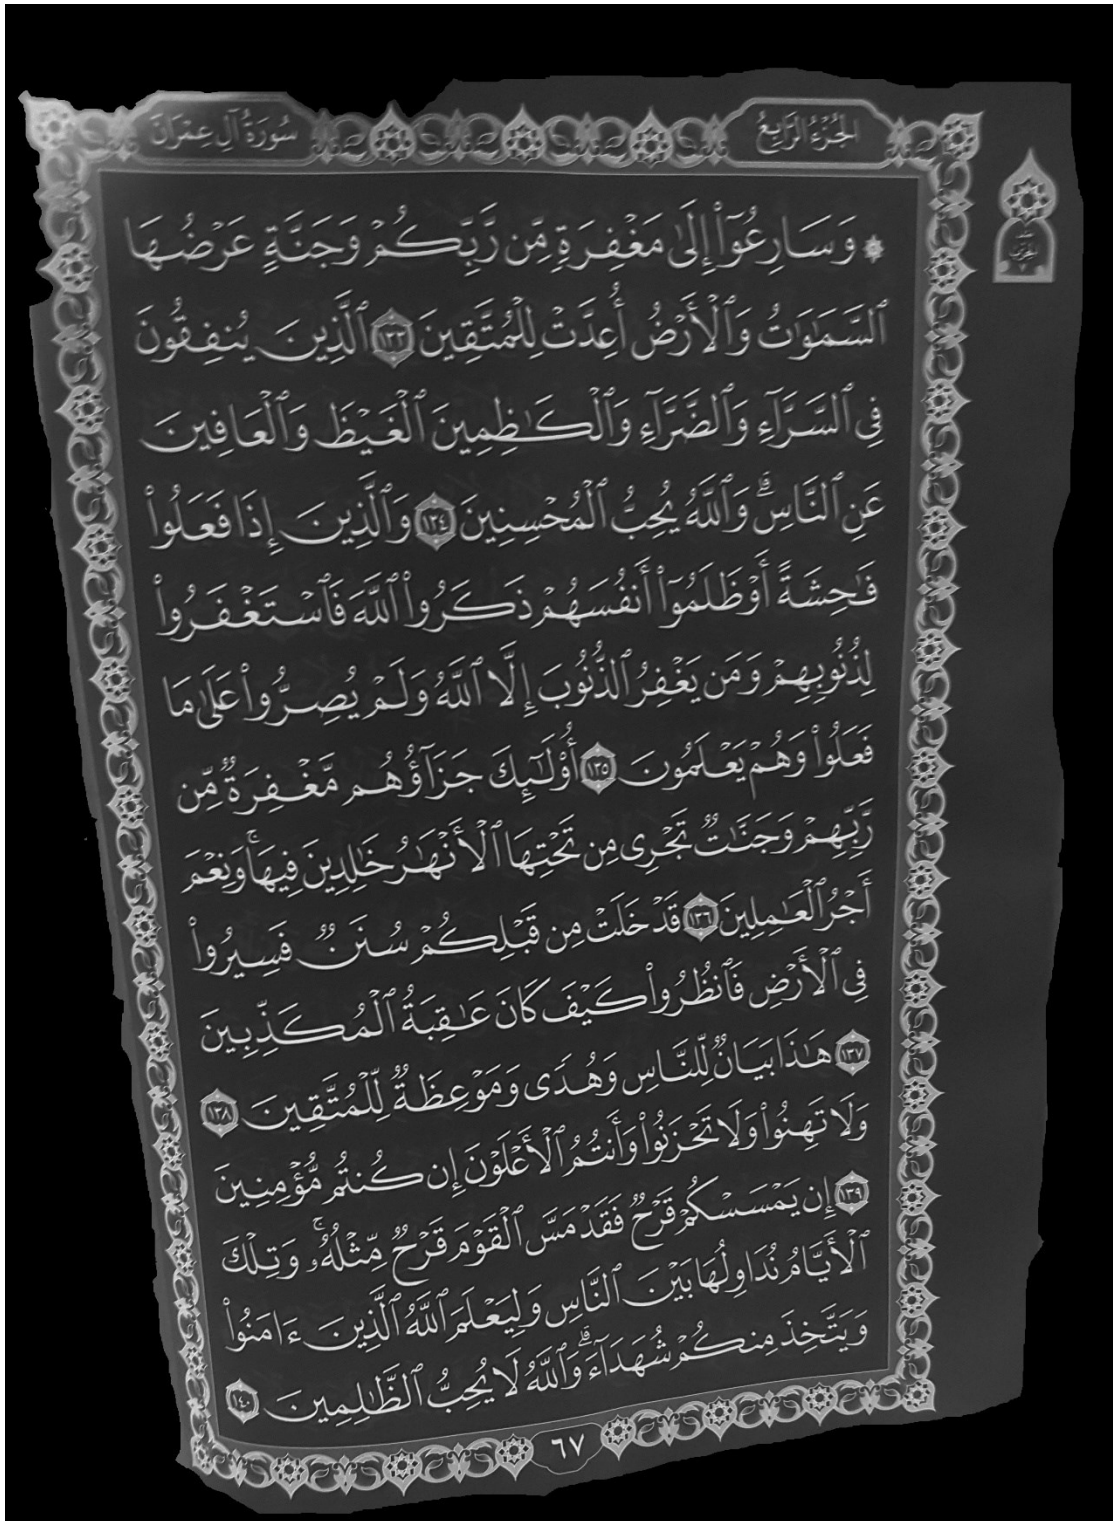 الجزء الرابع
سورة آل عمران
۞ وَسَارِعُوٓا۟ إِلَىٰ مَغْفِرَةٍ مِّن رَّبِّكُمْ وَجَنَّةٍ عَرْضُهَا
ٱلسَّمَٰوَٰتُ وَٱلْأَرْضُ أُعِدَّتْ لِلْمُتَّقِينَ ١٣٣ ٱلَّذِينَ يُنفِقُونَ
فِى ٱلسَّرَّآءِ وَٱلضَّرَّآءِ وَٱلْكَٰظِمِينَ ٱلْغَيْظَ وَٱلْعَافِينَ
عَنِ ٱلنَّاسِ ۗ وَٱللَّهُ يُحِبُّ ٱلْمُحْسِنِينَ ١٣٤ وَٱلَّذِينَ إِذَا فَعَلُوا۟
فَٰحِشَةً أَوْ ظَلَمُوٓا۟ أَنفُسَهُمْ ذَكَرُوا۟ ٱللَّهَ فَٱسْتَغْفَرُوا۟
لِذُنُوبِهِمْ وَمَن يَغْفِرُ ٱلذُّنُوبَ إِلَّا ٱللَّهُ وَلَمْ يُصِرُّوا۟ عَلَىٰ مَا
فَعَلُوا۟ وَهُمْ يَعْلَمُونَ ١٣٥ أُو۟لَٰٓئِكَ جَزَآؤُهُم مَّغْفِرَةٌ مِّن
رَّبِّهِمْ وَجَنَّٰتٌ تَجْرِى مِن تَحْتِهَا ٱلْأَنْهَٰرُ خَٰلِدِينَ فِيهَا ۚ وَنِعْمَ
أَجْرُ ٱلْعَٰمِلِينَ ١٣٦ قَدْ خَلَتْ مِن قَبْلِكُمْ سُنَنٌ فَسِيرُوا۟
فِى ٱلْأَرْضِ فَٱنظُرُوا۟ كَيْفَ كَانَ عَٰقِبَةُ ٱلْمُكَذِّبِينَ
١٣٧ هَٰذَا بَيَانٌ لِّلنَّاسِ وَهُدًى وَمَوْعِظَةٌ لِّلْمُتَّقِينَ ١٣٨
وَلَا تَهِنُوا۟ وَلَا تَحْزَنُوا۟ وَأَنتُمُ ٱلْأَعْلَوْنَ إِن كُنتُم مُّؤْمِنِينَ
١٣٩ إِن يَمْسَسْكُمْ قَرْحٌ فَقَدْ مَسَّ ٱلْقَوْمَ قَرْحٌ مِّثْلُهُۥ ۚ وَتِلْكَ
ٱلْأَيَّامُ نُدَاوِلُهَا بَيْنَ ٱلنَّاسِ وَلِيَعْلَمَ ٱللَّهُ ٱلَّذِينَ ءَامَنُوا۟
وَيَتَّخِذَ مِنكُمْ شُهَدَآءَ ۗ وَٱللَّهُ لَا يُحِبُّ ٱلظَّٰلِمِينَ ١٤٠
٦٧